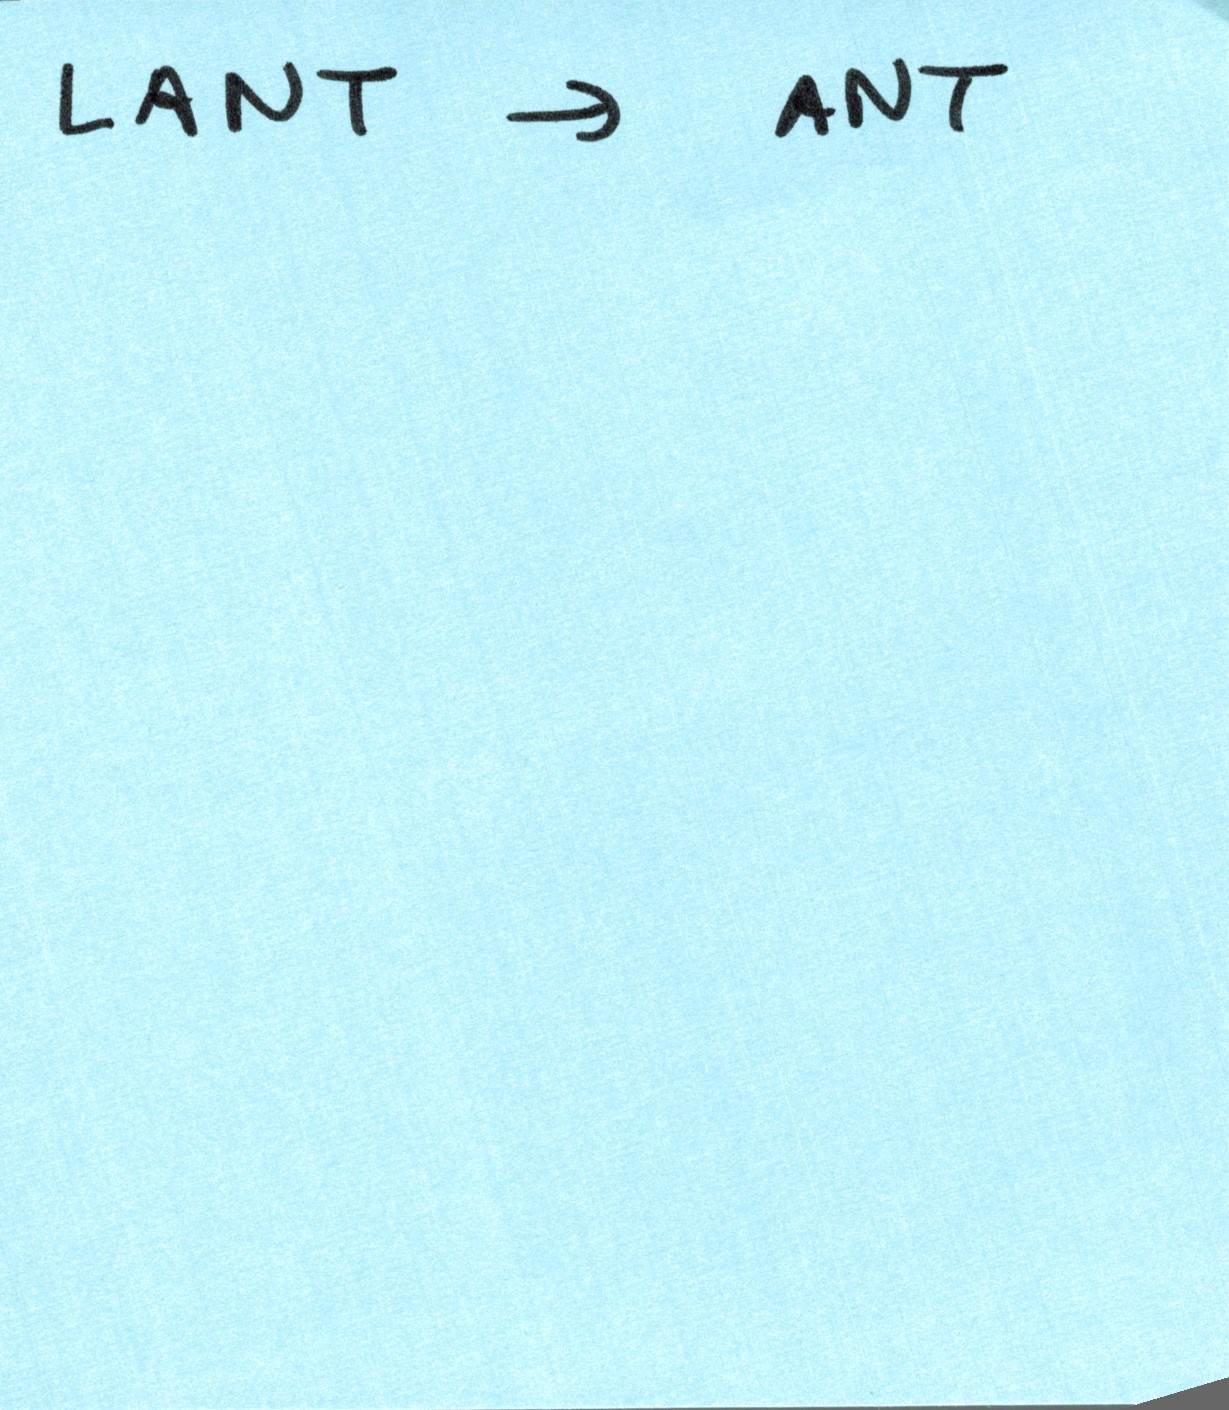 LANT → ANT